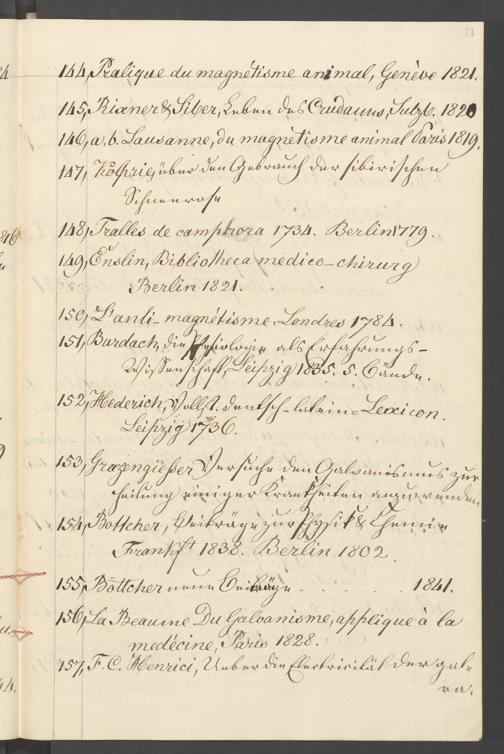 27
144, Pratique du magnétisme animal, Genève 1821.
145, Rixner & Siber, Leben des Cardanus, Sulzb. 1820
146, a. b. Lausanne, du magnétisme animal Paris 1819.
147, über den Gebrauch der sibirischen
Schneerose
148, Tralles de camphora 1734. Berlin 1779.
149, Enslin, Bibliotheca medico-chirurg
Berlin 1821.
150, L'anti-magnétisme. Londres 1784.
151, Burdach, die Physiologie als Erfahrungs-
Wissenschaft, Leipzig 1835. 5. Bände.
152, Hederich, Vollst. deutsch-latein- Lexicon.
Leipzig 1736.
153, Grapengießer Versuche den Galvanismus zur
Heilung einiger Krankheiten anzuwenden
154, Böttcher, Beiträge zur Physik & Chemie
Frankft 1838. Berlin 1802.
155, Böttcher neue Beiträge . . . . . 1841.
156, La Beaume Du Galvanisme, applique à la
medécine, Paris 1828.
157, F. C. Henrici, Ueber die Electricität der gal-
va-